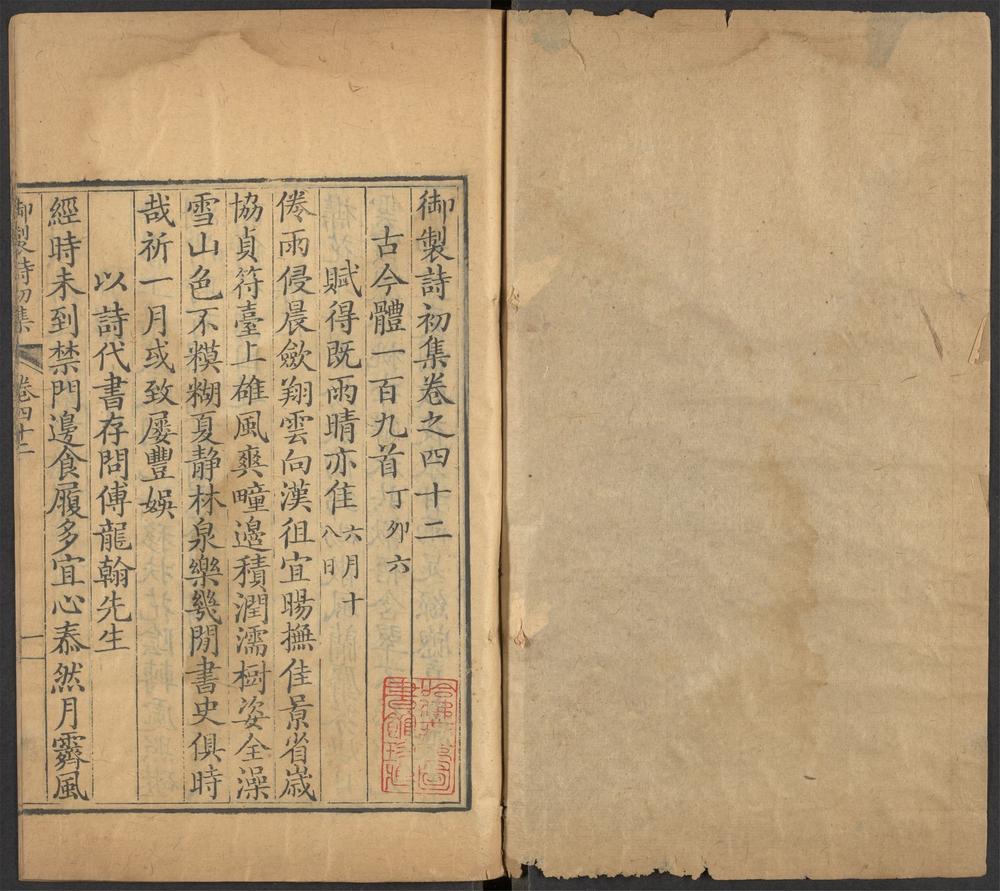 御製詩初集卷之四十二
古今體一百九首丁卯六
賦得既雨晴亦佳六月十八日
倦雨侵晨歛翔雲向漢徂宜暘撫佳景省歲
協貞符臺上雄風爽疃邊積潤濡樹姿全澡
雪山色不糢糊夏静林泉樂幾閒書史俱時
哉祈一月或致屢豐娛
以詩代書存問傅龍翰先生
經時未到禁門邊食履多宜心泰然月霽風
御製詩初集
卷四十二
一
哈佛大學漢和圖書館珍藏